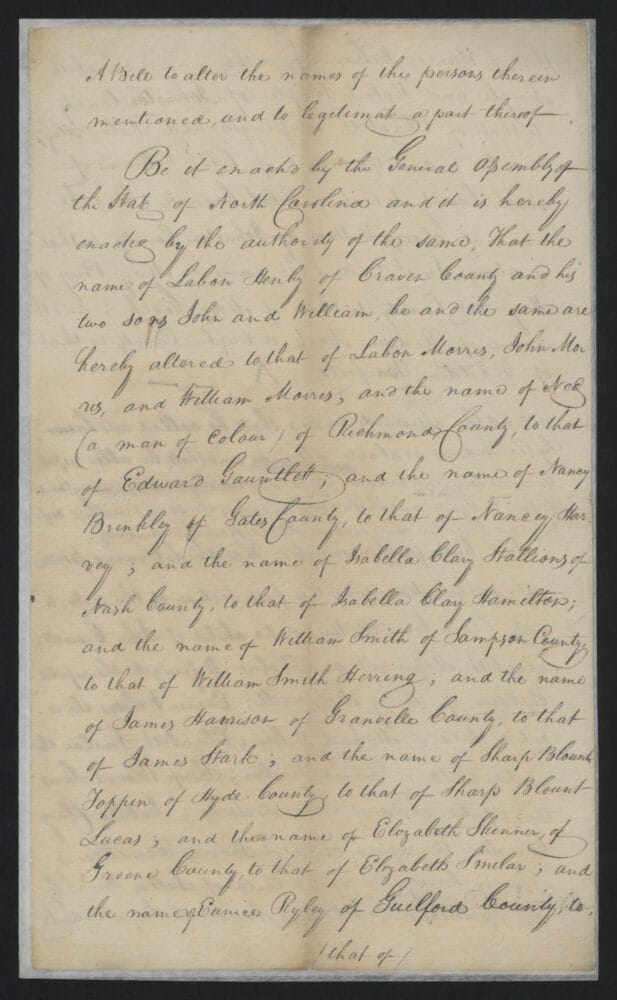 A Bill to alter the names of the persons therein
mentioned, and to legitimate a part thereof.
Be it enacted by the General Assembly of
the State of North Carolina and it is hereby
enacted by the authority of the same, That the
name of Labon Henby of Craven County and his
two sons John and William, be and the same are
hereby altered to that of Labon Morris, John Mor
ris, and William Morris; and the name of Ned
(a man of colour) of Richmond County, to that
of Edward Gauntlett; and the name of Nancy
Brinkley of Gates County, to that of Nancey Har-
vey; and the name of Isabella Clary Stallions of
Nash County, to that of Isabella Clary Hamilton;
and the name of William Smith of Sampson County,
to that of William Smith Herring; and the name
of James Harrison of Granville County, to that
of James Stark; and the name of Sharp Blount
Toppin of Hyde County, to that of Sharp Blount
Lucas; and the name of Elizabeth Skinner, of
Greene County, to that of Elizabeth
; and
the name of Eunice Ryley of Guilford County to
(that of)